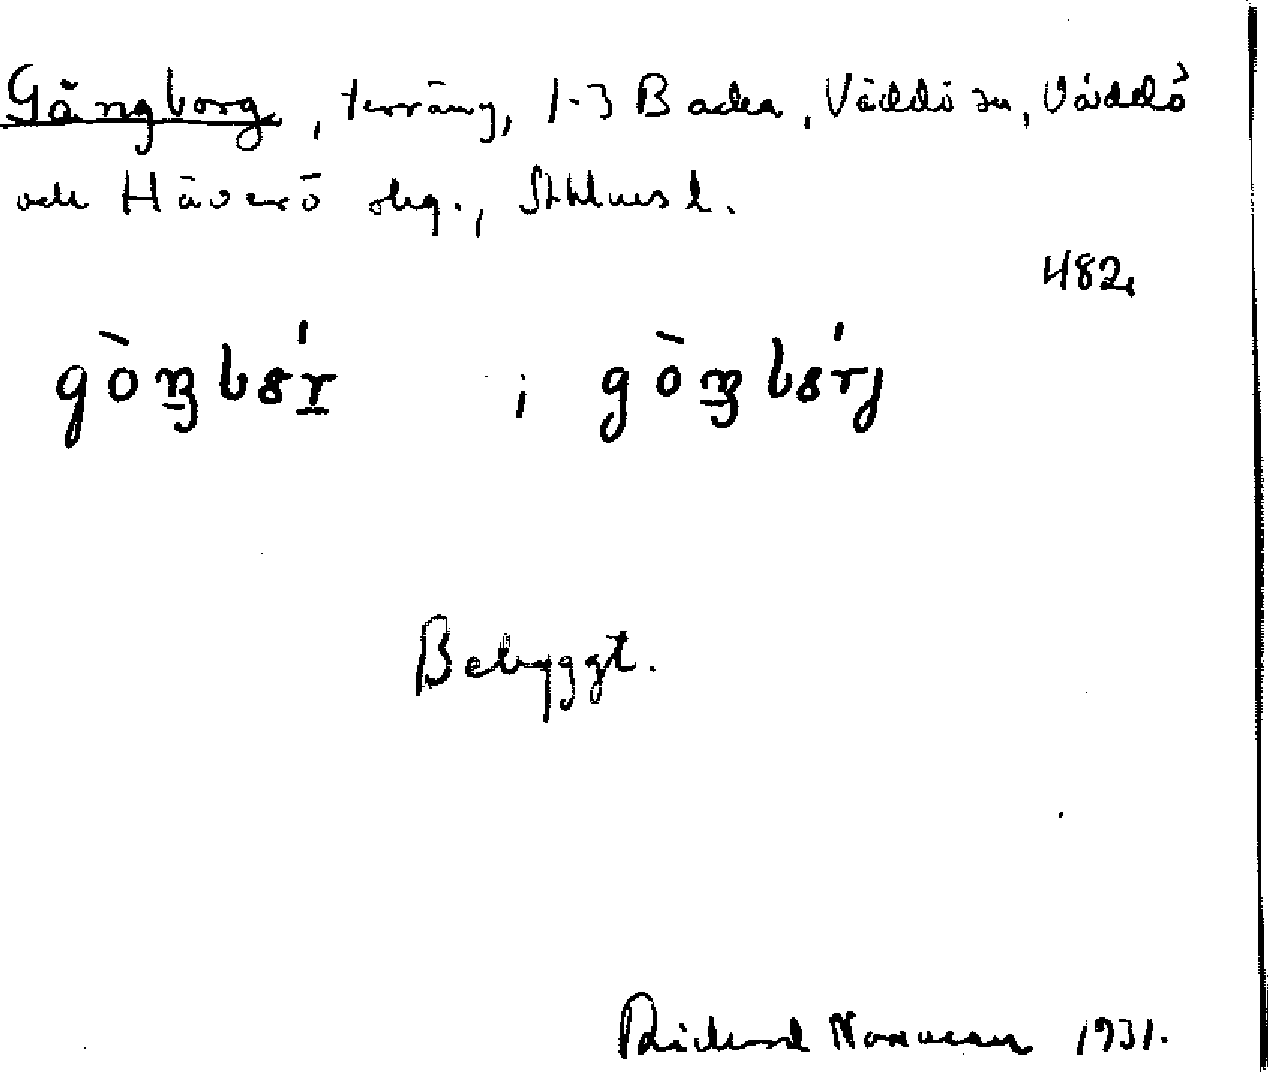 Gångborg, terräng, 1-3 Baden, Väddö sn, Väddö
och Häverö skg., Sthlms l.
482.
gòŋbór ; gòŋbórj
Bebyggt.
Rickard Norman 1931.